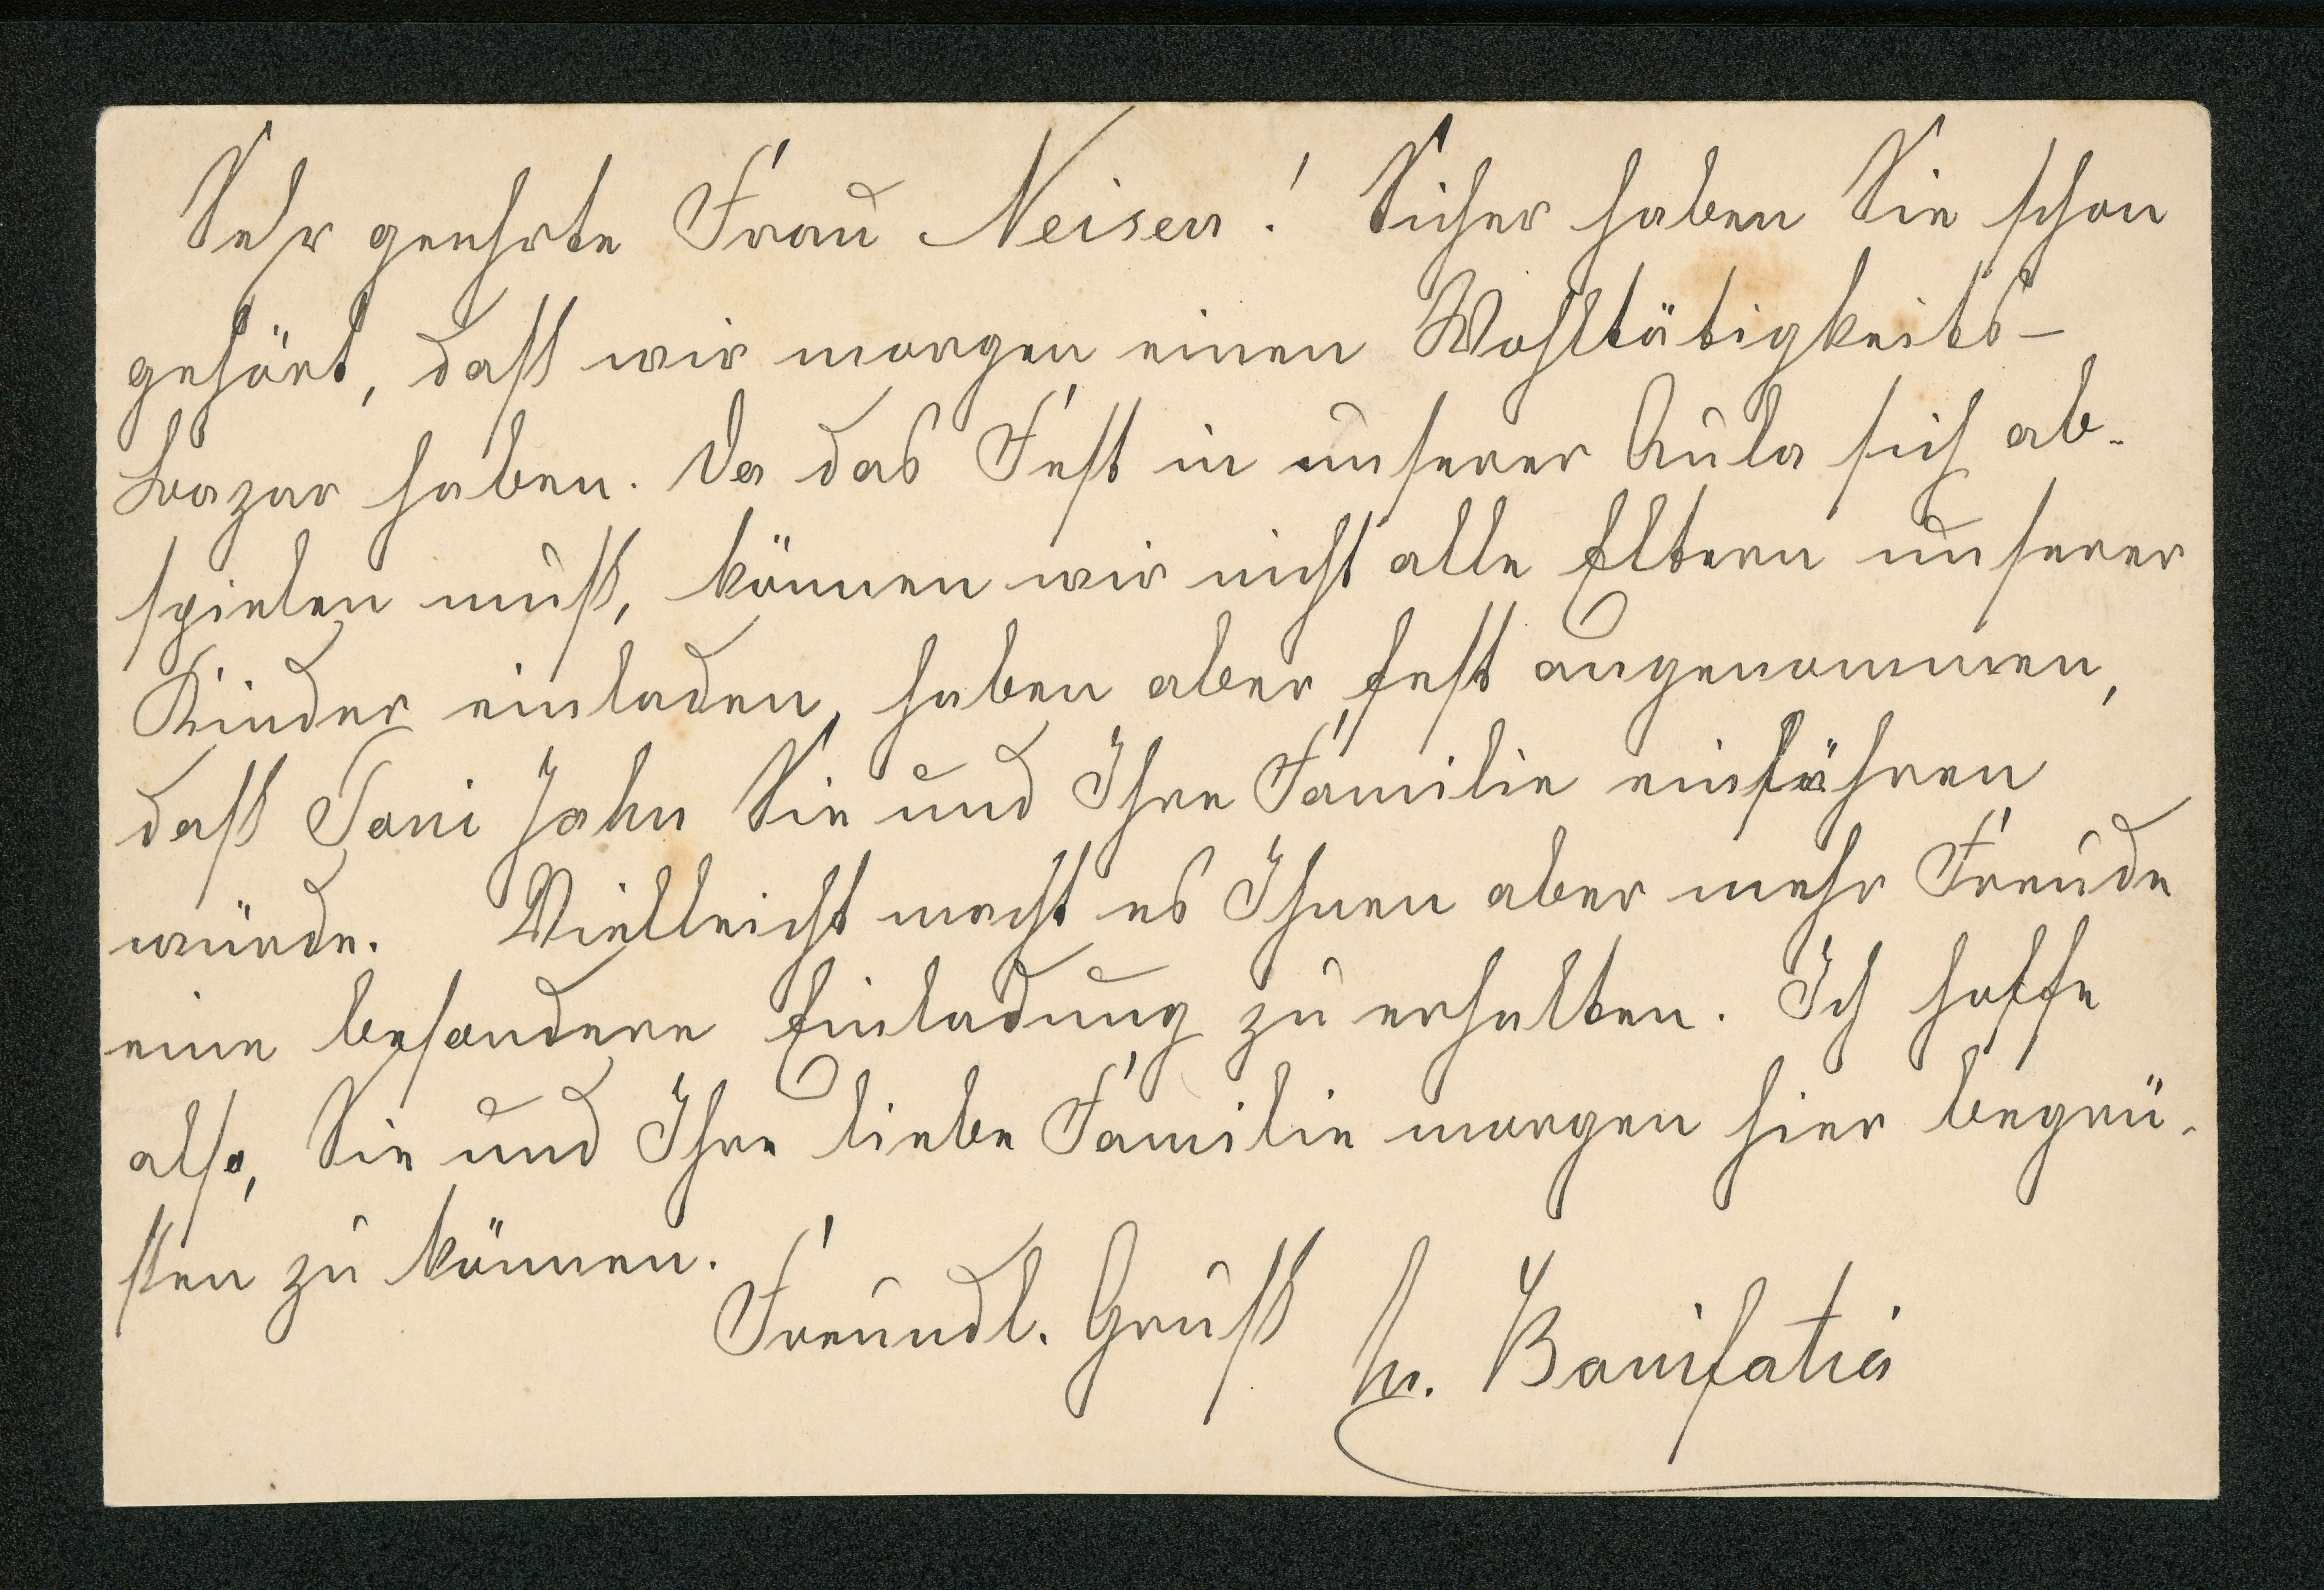 Sehr geehrte Frau Neisen! Sicher haben Sie schon
gehört, daß wir morgen einen Wohltätigkeits-
bazar haben. Da das Fest in unserer Aula sich ab-
spielen muß, können wir nicht alle Eltern unserer
Kinder einladen, haben aber fest angenommen,
daß Toni Jahn Sie und Ihre Familie einführen
würde. Vielleicht macht es Ihnen aber mehr Freude
eine besondere Einladung zu erhalten. Ich hoffe
also, Sie und Ihre liebe Familie morgen hier begrü-
ßen zu können.
Freundl. Gruß Sr. Bonifatia